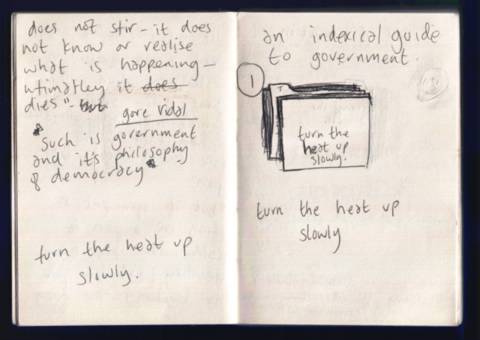 does not stir - it does
not know or realise
what is happening -
ultimatley it does
dies" - but
gore vidal
"Such is government
and it's philosophy
& democracy"
turn the heat up
slowly.
an indexical guide
to government.
1
turn the
heat up
slowly.
turn the heat up
slowly